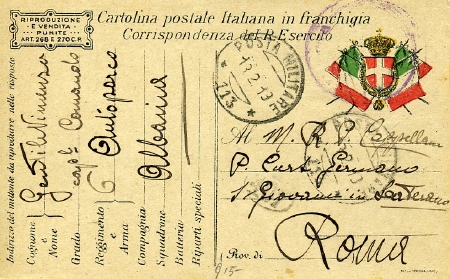 RIPRODUZIONE
E VENDITA
PUNITE
ART. 268 E 270 C.P.
Cartolina postale Italiana in franchigia
Corrispondenza del R. Esercito
POSTA MILITARE
113
Indirizzo del mittente da riprodurre nelle risposte
Cognome e Nome
Gentili Vincenzo
Grado
Reggimento e Arma
6 Autoparco
Compagnia
Squadrone
Batteria
Albania
Riparti speciali
Al M. R. P.
P. Curs. Germano
S. Giovanni in Laterano
Prov. di
Roma